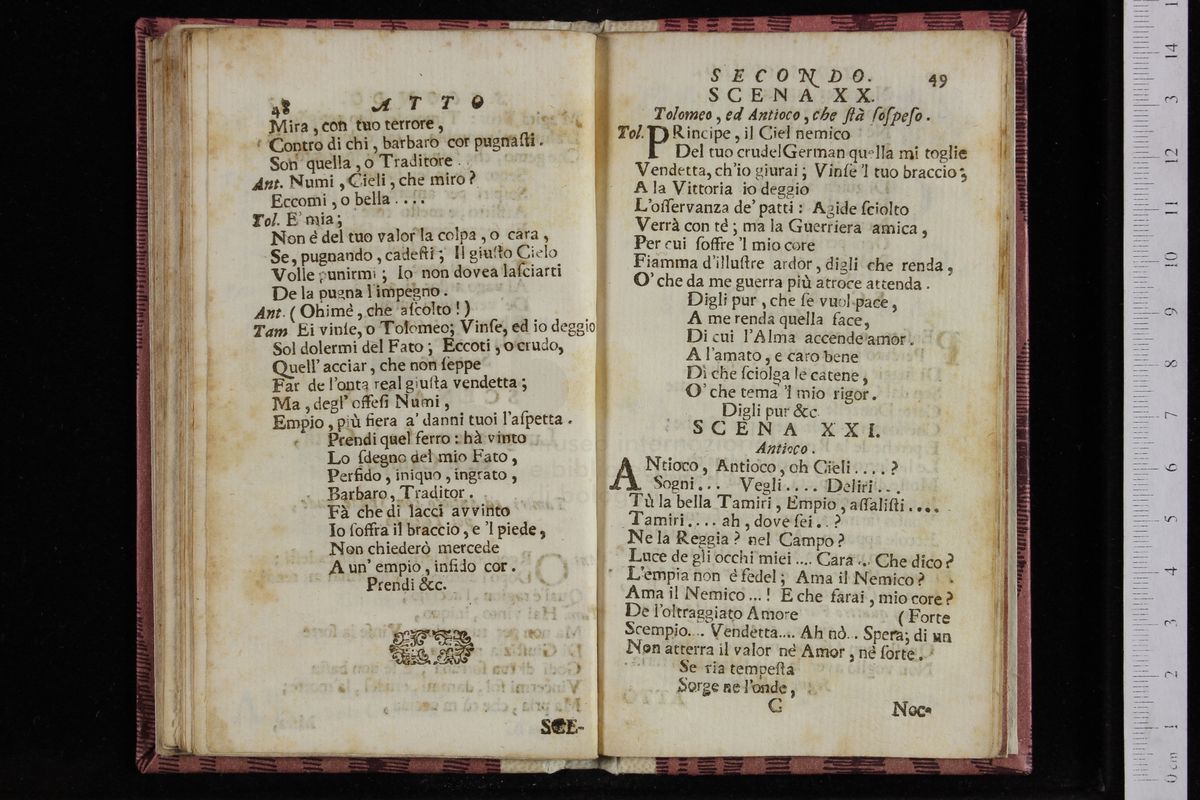 48 ATTO
Mira, con tuo terrore,
Contro di chi, barbaro cor pugnaſti.
Son quella, o Traditore.
Ant. Numi, Cieli, che miro?
Eccomi, o bella ....
Tol. E' mia;
Non è del tuo valor la colpa, o cara,
Se, pugnando, cadeſti; Il giuſto Cielo
Volle punirmi; Io non dovea laſciarti
De la pugna l'impegno.
Ant. (Ohimè, che aſcolto!)
Tam Ei vinſe, o Tolomeo; Vinſe, ed io deggio
Sol dolermi del Fato; Eccoti, o crudo,
Quell' acciar, che non ſeppe
Far de l'onta real giuſta vendetta;
Ma, degl' offeſi Numi,
Empio, più fiera a' danni tuoi l'aſpetta.
Prendi quel ferro: hà vinto
Lo ſdegno del mio Fato,
Perfido, iniquo, ingrato,
Barbaro, Traditor.
Fà che di lacci avvinto
Io ſoffra il braccio, e 'l piede,
Non chiederò mercede
A un' empio, infido cor.
Prendi &c.
SCE-
SECONDO. 49
SCENA XX.
Tolomeo, ed Antioco, che ſtà ſoſpeſo.
Tol. PRincipe, il Ciel nemico
Del tuo crudel German quella mi toglie
Vendetta, ch'io giurai; Vinſe 'l tuo braccio;
A la Vittoria io deggio
L'oſſervanza de' patti: Agide ſciolto
Verrà con tè; ma la Guerriera amica,
Per cui ſoffre 'l mio core
Fiamma d'illuſtre ardor, digli che renda,
O' che da me guerra più atroce attenda.
Digli pur, che ſe vuol pace,
A me renda quella face,
Di cui l'Alma accende amor.
A l'amato, e caro bene
Dì che ſciolga le catene,
O' che tema 'l mio rigor.
Digli pur &c.
SCENA XXI.
Antioco.
ANtioco, Antioco, oh Cieli ....?
Sogni... Vegli.... Deliri...
Tù la bella Tamiri, Empio, aſſaliſti....
Tamiri.... ah, dove ſei..?
Ne la Reggia? nel Campo?
Luce de gli occhi miei .... Cara... Che dico?
L'empia non è fedel; Ama il Nemico?
Ama il Nemico ...! E che farai, mio core?
De l'oltraggiato Amore (Forte
Scempio... Vendetta.... Ah nò.. Spera; di un
Non atterra il valor nè Amor, nè ſorte.
Se ria tempeſta
Sorge ne l'onde,
C Noc-